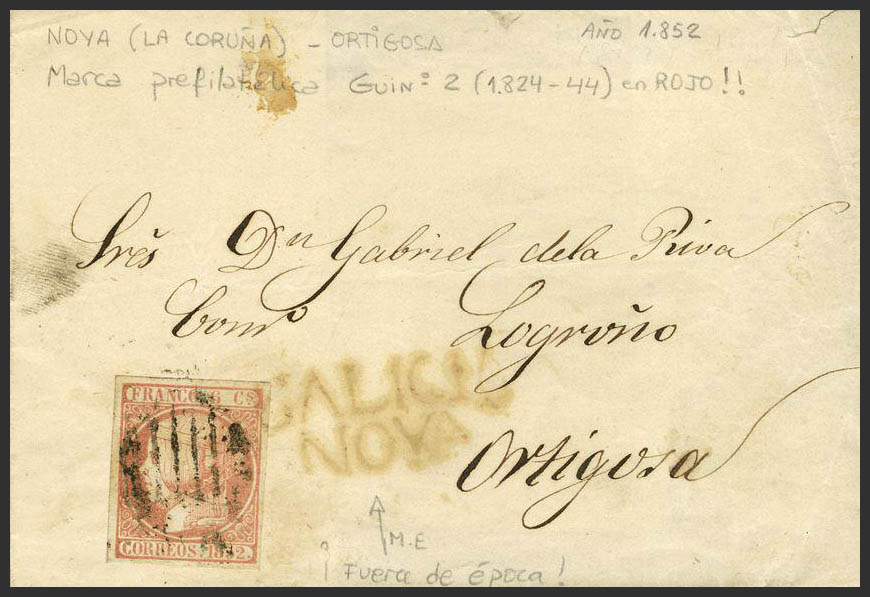 NOYA (LA CORUÑA) - ORTIGOSA AÑO 1.852
Marca prefilatélica GUIN° 2 (1.824-44) en ROJO!!
Srēs Dn Gabriel dela Riva
Logroño
GALICIA
NOYA
FRANCO 6 Cs
CORREOS 1852.
Ortigosa
M.E
¡Fuera de época!